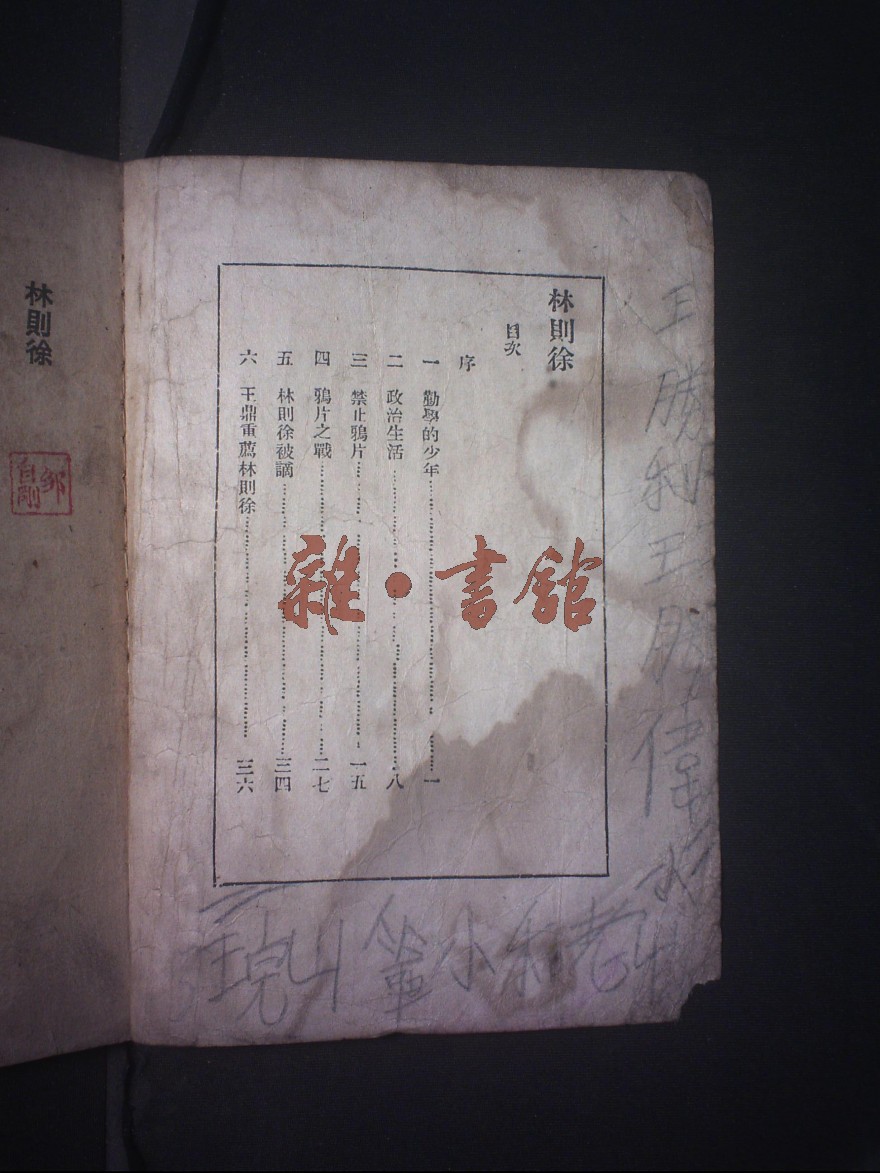 林則徐
目次
序
一 勤學的少年……一
二 政治生活……八
三 禁止鴉片……一五
四 鴉片之戰……二七
五 林則徐被謫……三四
六 王鼎重薦林則徐……三六
雜·書館
王勝利王勝偉
林則徐
鄒自剛